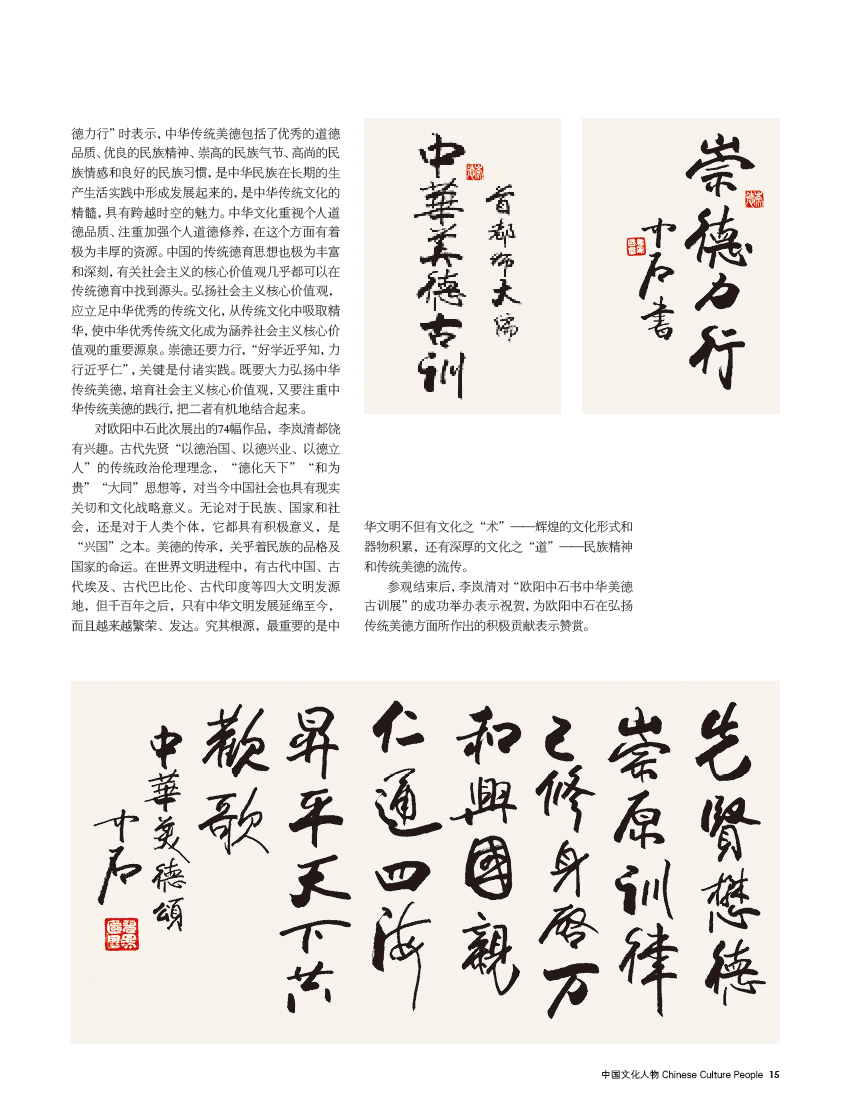 德力行”时表示，中华传统美德包括了优秀的道德
品质、优良的民族精神、崇高的民族气节、高尚的民
族情感和良好的民族习惯，是中华民族在长期的生
产生活实践中形成发展起来的，是中华传统文化的
精髓，具有跨越时空的魅力。中华文化重视个人道
德品质、注重加强个人道德修养，在这个方面有着
极为丰厚的资源。中国的传统德育思想也极为丰富
和深刻，有关社会主义的核心价值观几乎都可以在
传统德育中找到源头。弘扬社会主义核心价值观，
应立足中华优秀的传统文化，从传统文化中吸取精
华，使中华优秀传统文化成为涵养社会主义核心价
值观的重要源泉。崇德还要力行，“好学近乎知，力
行近乎仁”，关键是付诸实践。既要大力弘扬中华
传统美德，培育社会主义核心价值观，又要注重中
华传统美德的践行，把二者有机地结合起来。
对欧阳中石此次展出的74幅作品，李岚清都饶
有兴趣。古代先贤“以德治国、以德兴业、以德立
人”的传统政治伦理理念，“德化天下”“和为
贵”“大同”思想等，对当今中国社会也具有现实
关切和文化战略意义。无论对于民族、国家和社
会，还是对于人类个体，它都具有积极意义，是
“兴国”之本。美德的传承，关乎着民族的品格及
国家的命运。在世界文明进程中，有古代中国、古
代埃及、古代巴比伦、古代印度等四大文明发源
地，但千百年之后，只有中华文明发展延绵至今，
而且越来越繁荣、发达。究其根源，最重要的是中
首都师大儒
中華美德古训
崇德力行
中石書
华文明不但有文化之“术”——辉煌的文化形式和
器物积累，还有深厚的文化之“道”——民族精神
和传统美德的流传。
参观结束后，李岚清对“欧阳中石书中华美德
古训展”的成功举办表示祝贺，为欧阳中石在弘扬
传统美德方面所作出的积极贡献表示赞赏。
先賢懋德
崇原训律
己修身啓万
和興國親
仁通四海
昇平天下共
歡歌
中華美德頌
中石
中国文化人物 Chinese Culture People 15